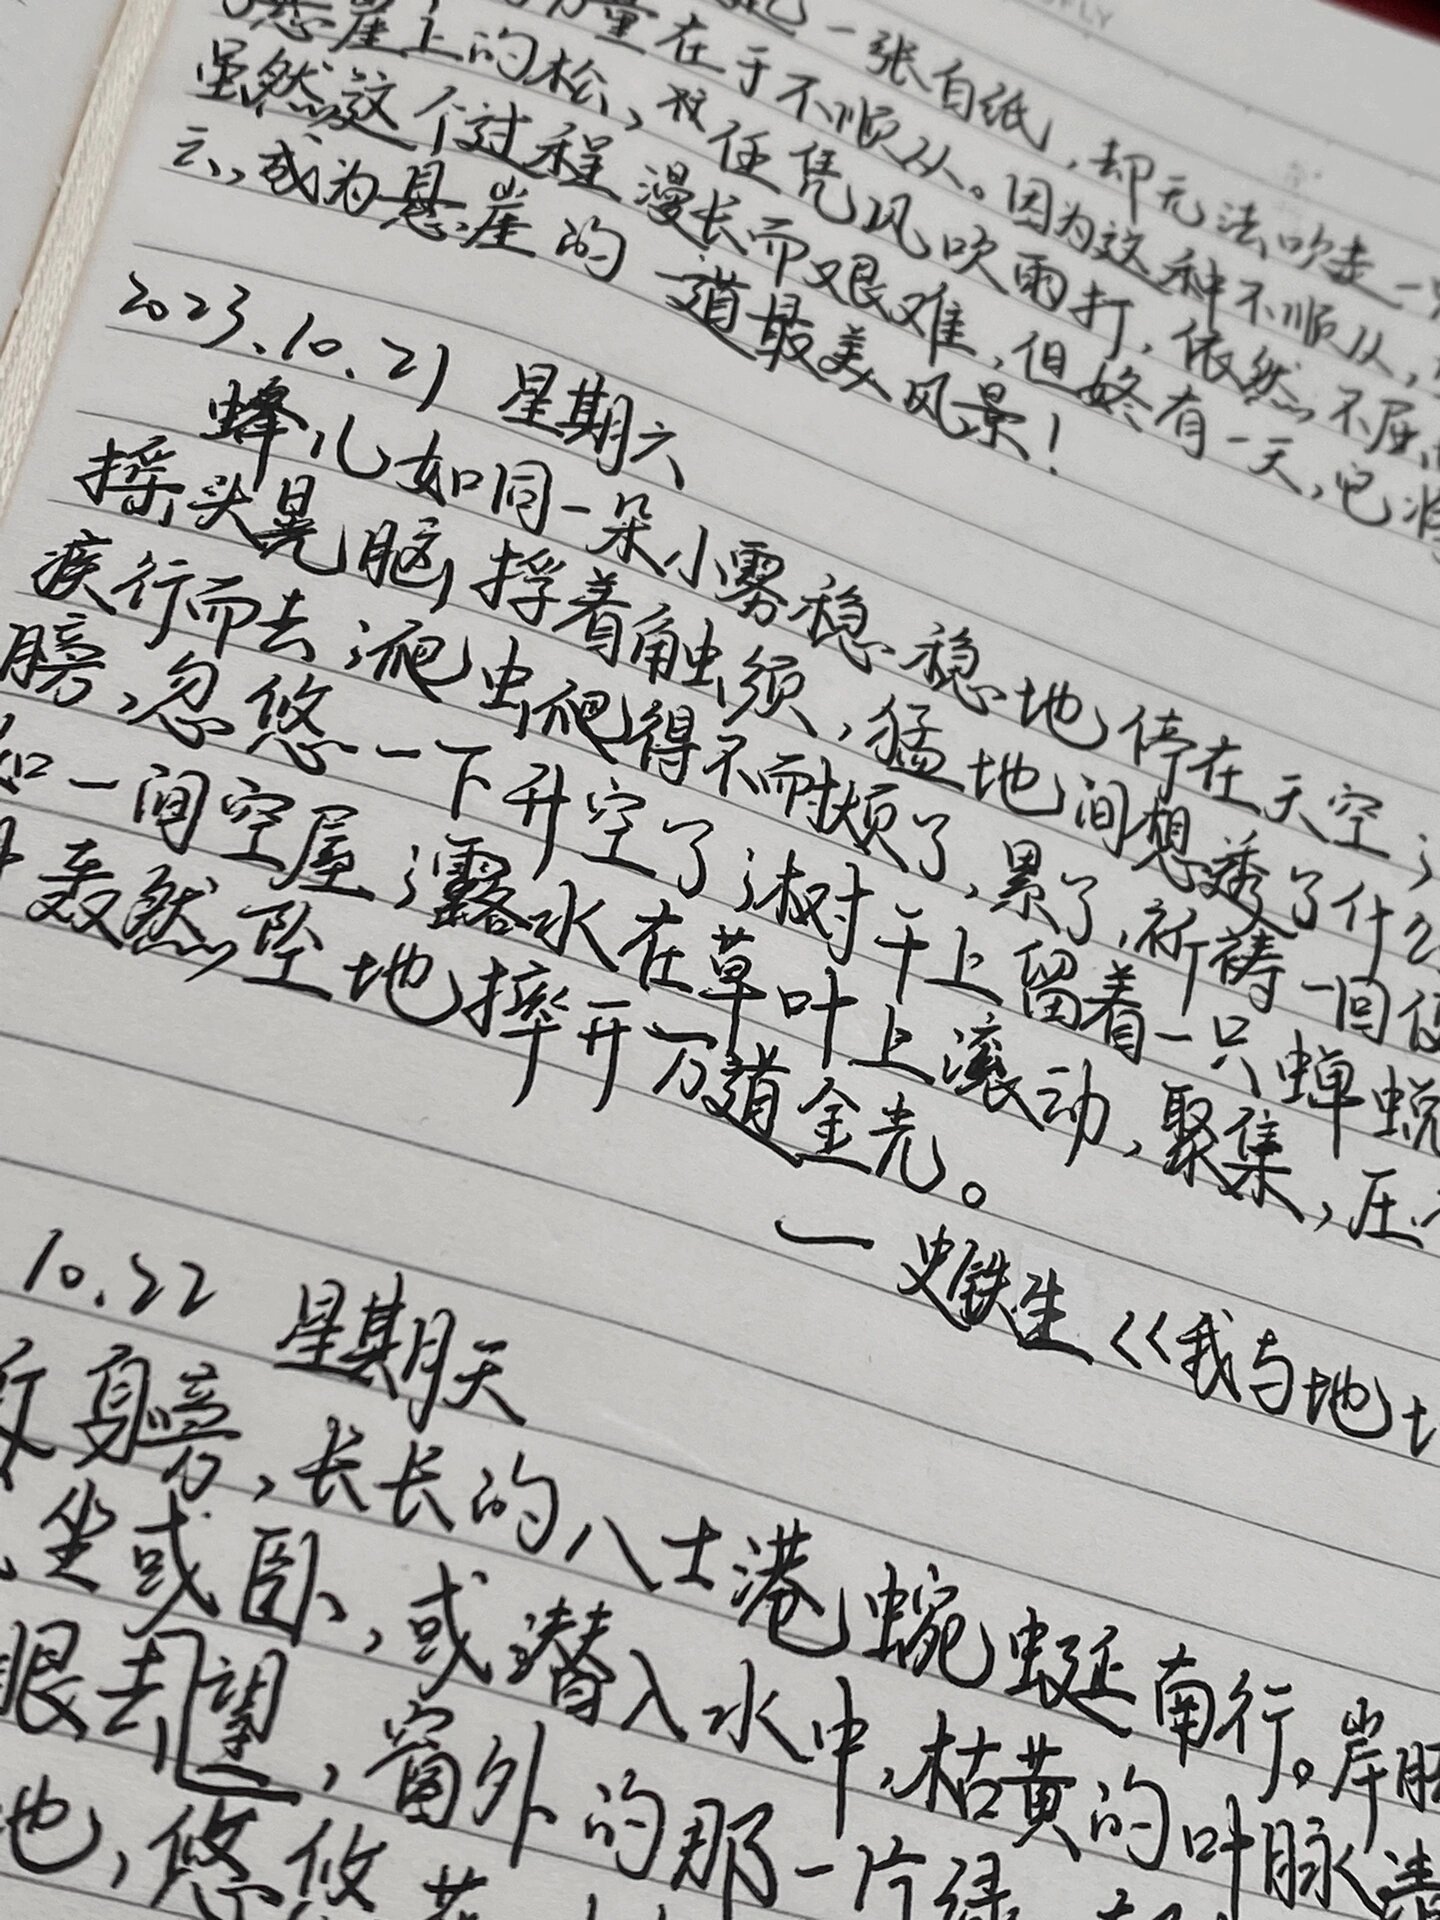 一张白纸，却无法吹走一只
量在于不顺从。因为这种不顺从，
悬崖上的松，任凭风吹雨打，依然不屈
虽然这个过程漫长而艰难，但终有一天，它将
云，成为悬崖的一道最美风景！
2023.10.21 星期六
蜂儿如同一朵小雾稳稳地停在天空；
摇头晃脑捋着触须，猛地间想透了什么
疾行而去；瓢虫爬得不耐烦了，累了，祈祷一回便
膀，忽悠一下升空了；树干上留着一只蝉蜕
如一间空屋；露水在草叶上滚动，聚集，压
轰然坠地摔开万道金光。
一史铁生《我与地
10.22 星期天
身旁，长长的八士港蜿蜒南行。岸
坐或卧，或潜入水中，枯黄的叶脉清
眼去望，窗外的那一片绿
地，悠悠